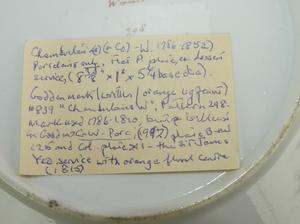 298
Chamberlain (& Co) - W. 1786-1852)
Porcelain mug, nar P plate, or dessert
service, (8 " x 1" x 5 4 base dia).
Godden mark (written / orange
#839 "Chamberlains W", Pattern 298.
Mark used 1786-1810, but
in Godden C-W- Porc, (1982) plate B
126 and Col. plate XI - the Sir James
Yeo service with orange floral centre
(c. 1815)